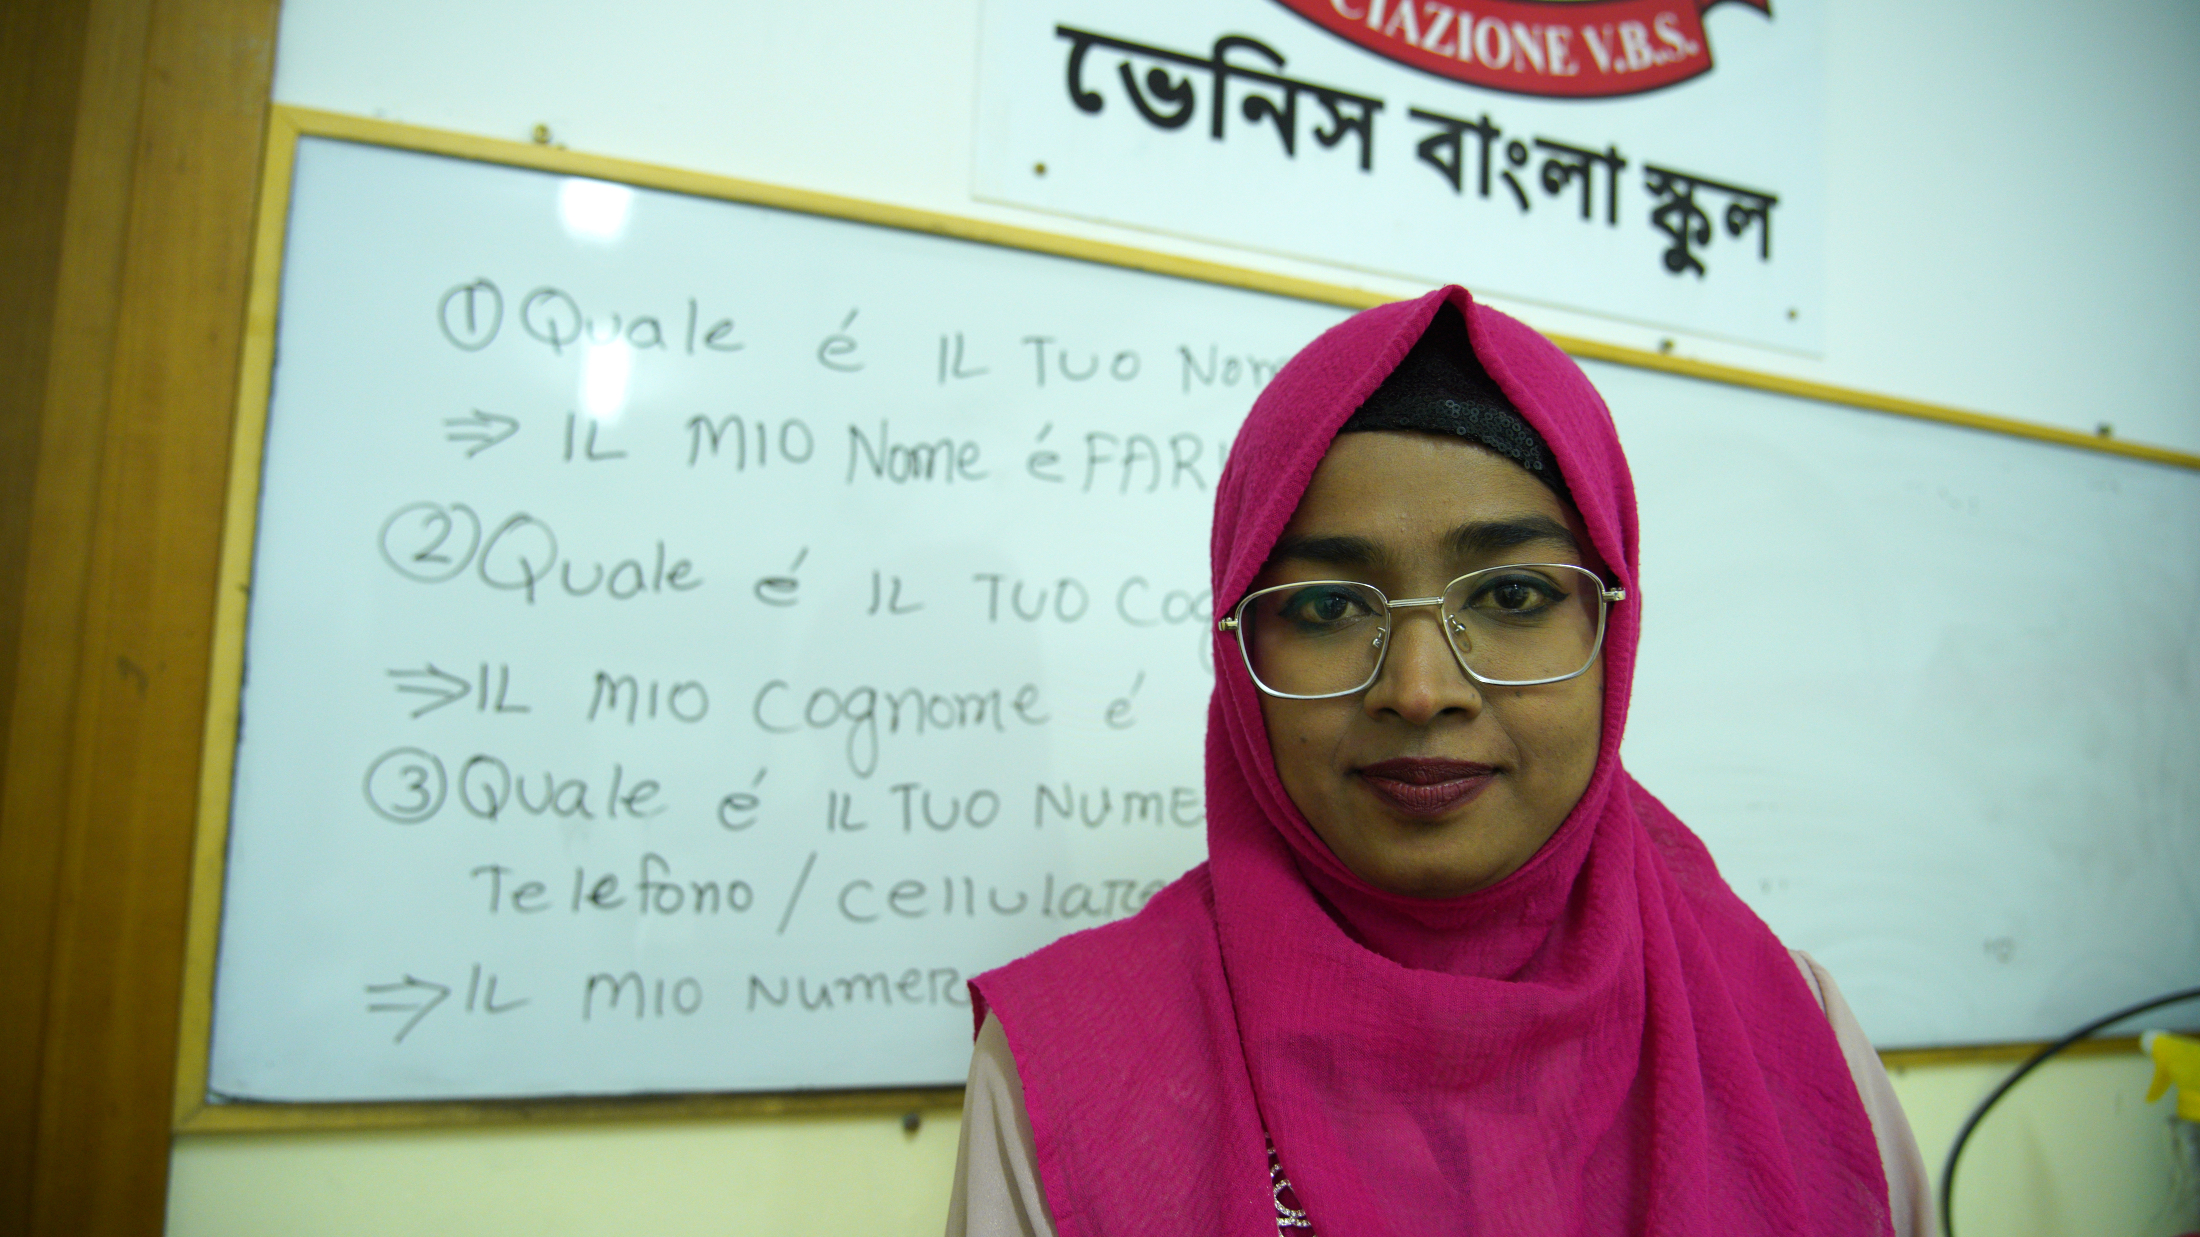 CIAZIONE V.B.S.
ভেনিস বাংলা স্কুল
① Quale é IL TUO Nom
⇒ IL MIO Nome é FAR
② Quale é IL TUO Cog
⇒ IL MIO Cognome é
③ Quale é IL TUO NUME
Telefono / cellulare
⇒ IL MIO NUMER